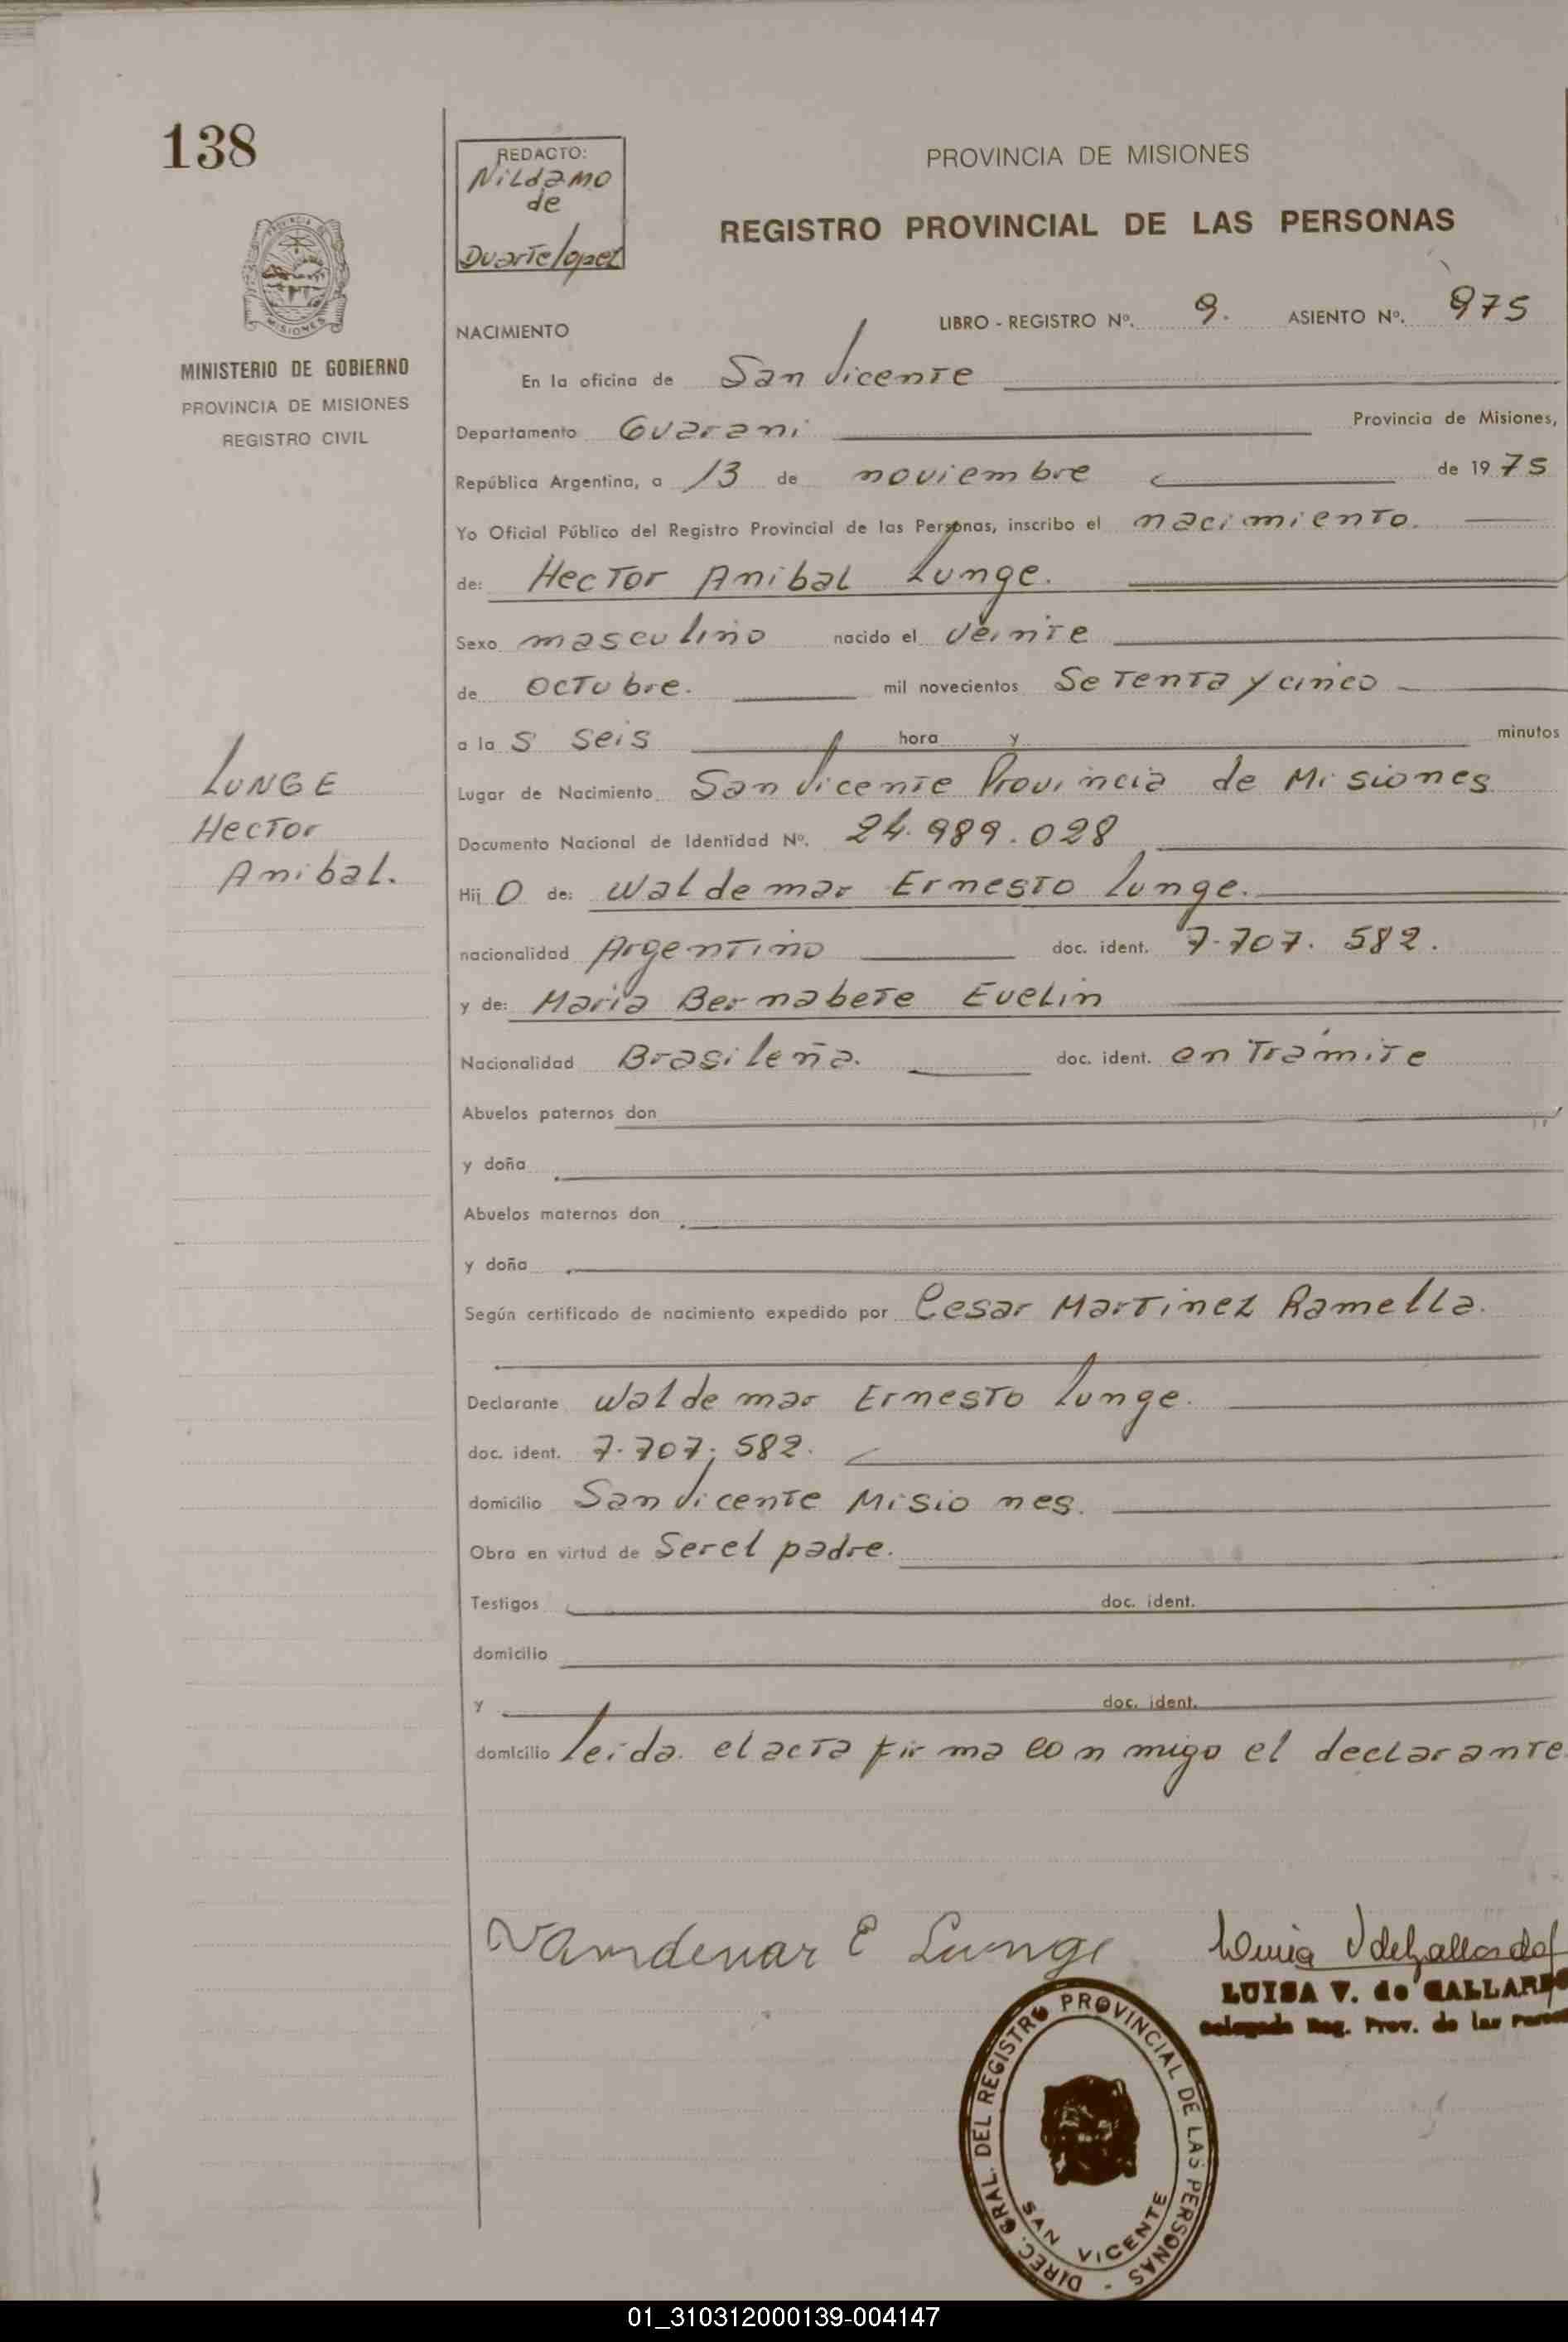 138
REDACTO:
Nildamo
de
Duarte lopez
PROVINCIA DE MISIONES
REGISTRO PROVINCIAL DE LAS PERSONAS
MINISTERIO DE GOBIERNO
PROVINCIA DE MISIONES
REGISTRO CIVIL
NACIMIENTO LIBRO - REGISTRO Nº. 9. ASIENTO Nº. 975
En la oficina de San Vicente
Departamento Guarani Provincia de Misiones,
República Argentina, a 13 de noviembre de 1975
Yo Oficial Público del Registro Provincial de las Personas, inscribo el nacimiento.
de: Hector Anibal Lunge.
Sexo masculino nacido el veinte
de octubre. mil novecientos Setenta y cinco
a la s seis hora y minutos
LUNGE
Hector
Anibal.
Lugar de Nacimiento San Vicente Provincia de Misiones
Documento Nacional de Identidad Nº. 24.989.028
Hij o de: Waldemar Ernesto Lunge.
nacionalidad Argentino doc. ident. 7.707.582.
y de: Maria Bernabete Evelin
Nacionalidad Brasileña. doc. ident. en Trámite
Abuelos paternos don
y doña
Abuelos maternos don
y doña
Según certificado de nacimiento expedido por Cesar Martinez Ramella.
Declarante Waldemar Ernesto Lunge.
doc. ident. 7.707.582.
domicilio San Vicente Misiones.
Obra en virtud de Ser el padre.
Testigos doc. ident.
domicilio
y doc. ident.
domicilio leida el acta firma conmigo el declarante
Vandenar E Lunge
LUISA V. de GALLARDO
Delegada Reg. Prov. de las
DIREC. GRAL. DEL REGISTRO PROVINCIAL DE LAS PERSONAS -
SAN VICENTE
01_310312000139-004147